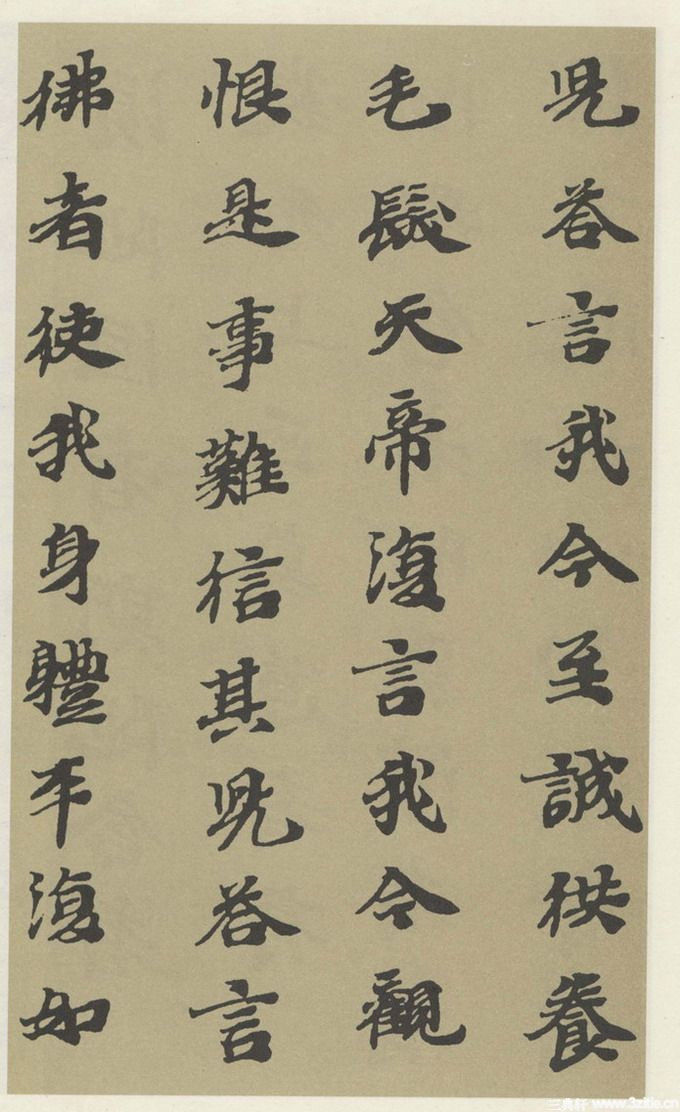 兒荅言我今至誠供養
毛髮天帝復言我今觀
恨是事難信其兒荅言
佛者使我身體平復如
三典轩 www.3zitie.cn